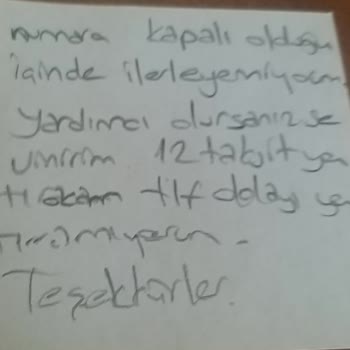 numara kapalı olduğu
içinde ilerleyemiyorum
yardımcı olursanız se
vinirim 12 taksit ya
tlf dolayı
Teşekkürler.